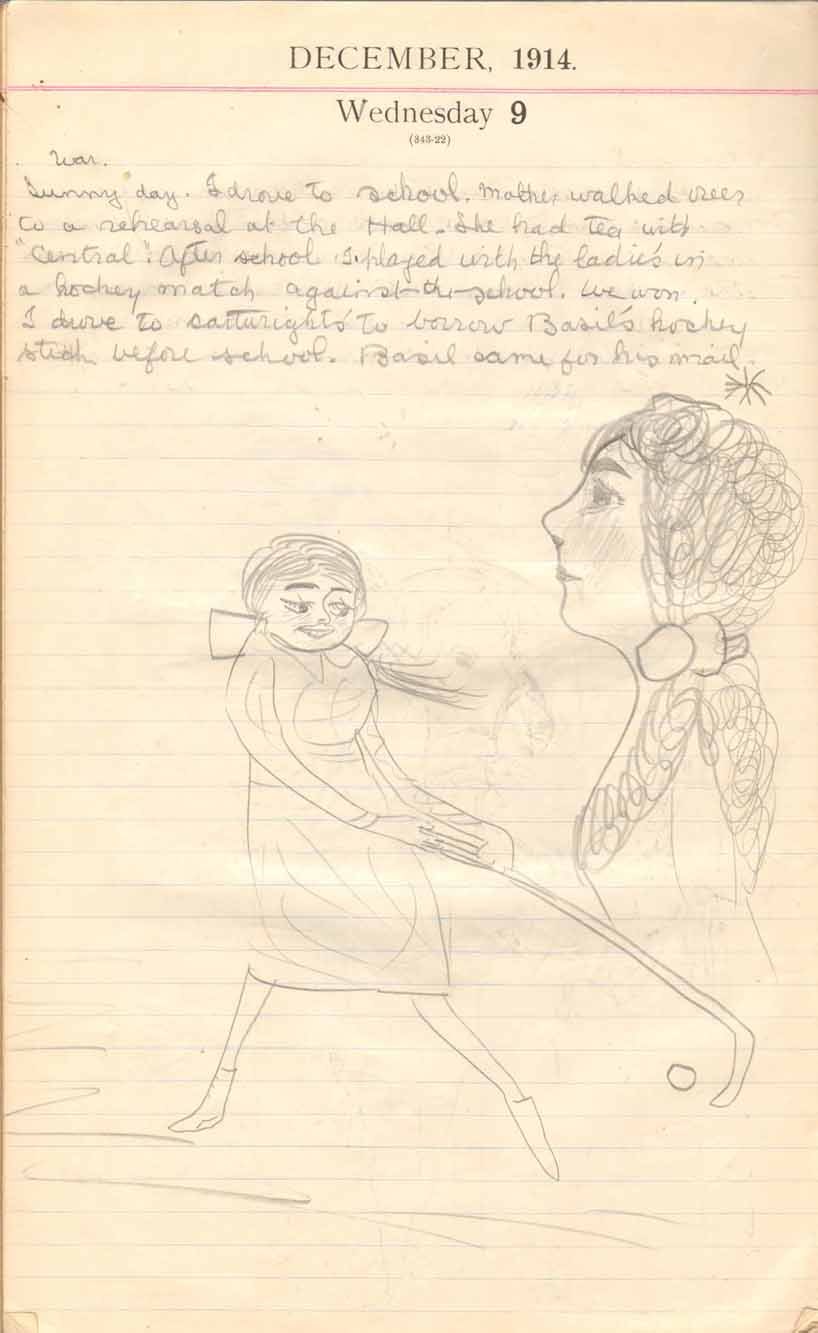 DECEMBER, 1914.
Wednesday 9
(343-22)
War.
Sunny day. I drove to school. Mother walked over
to a rehearsal at the Hall. She had Tea with
"Central". After school I played with the ladies in
a hockey match against the school. We won.
I drove to to borrow Basil's hockey
stick before school. Basil came for his mail.